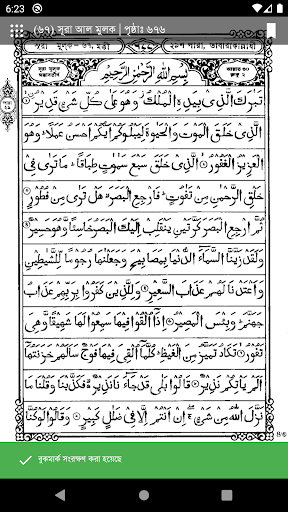 6:23
(৬৭) সূরা আল মুলক | পৃষ্ঠাঃ ৬৭৬
بِسْمِ اللّٰهِ الرَّحْمٰنِ الرَّحِيْمِ
تَبٰرَكَ الَّذِىْ بِيَدِهِ الْمُلْكُ وَهُوَ عَلٰى كُلِّ شَىْءٍ قَدِيْرُ
الَّذِىْ خَلَقَ الْمَوْتَ وَالْحَيٰوةَ لِيَبْلُوَكُمْ اَيُّكُمْ اَحْسَنُ عَمَلًا وَهُوَ
الْعَزِيْزُ الْغَفُوْرُ الَّذِىْ خَلَقَ سَبْعَ سَمٰوٰتٍ طِبَاقًا مَا تَرٰى فِىْ
خَلْقِ الرَّحْمٰنِ مِنْ تَفٰوُتٍ فَارْجِعِ الْبَصَرَ هَلْ تَرٰى مِنْ فُطُوْرٍ
ثُمَّ ارْجِعِ الْبَصَرَ كَرَّتَيْنِ يَنْقَلِبْ اِلَيْكَ الْبَصَرُ خَاسِئًا وَّهُوَ حَسِيْرٌ
وَلَقَدْ زَيَّنَّا السَّمَاءَ الدُّنْيَا بِمَصَابِيْحَ وَجَعَلْنٰهَا رُجُوْمًا لِّلشَّيٰطِيْنِ
وَاَعْتَدْنَا لَهُمْ عَذَابَ السَّعِيْرِ وَلِلَّذِيْنَ كَفَرُوْا بِرَبِّهِمْ عَذَابُ
جَهَنَّمَ وَبِئْسَ الْمَصِيْرُ اِذَا اُلْقُوْا فِيْهَا سَمِعُوْا لَهَا شَهِيْقًا وَّهِىَ
تَفُوْرُ تَكَادُ تَمَيَّزُ مِنَ الْغَيْظِ كُلَّمَا اُلْقِىَ فِيْهَا فَوْجٌ سَاَلَهُمْ خَزَنَتُهَا
اَلَمْ يَاْتِكُمْ نَذِيْرٌ قَالُوْا بَلٰى قَدْ جَاءَنَا نَذِيْرٌ فَكَذَّبْنَا وَقُلْنَا مَا
نَزَّلَ اللّٰهُ مِنْ شَىْءٍ اِنْ اَنْتُمْ اِلَّا فِىْ ضَلٰلٍ كَبِيْرٍ وَقَالُوْا لَوْ كُنَّا
বুকমার্ক সংরক্ষণ করা হয়েছে